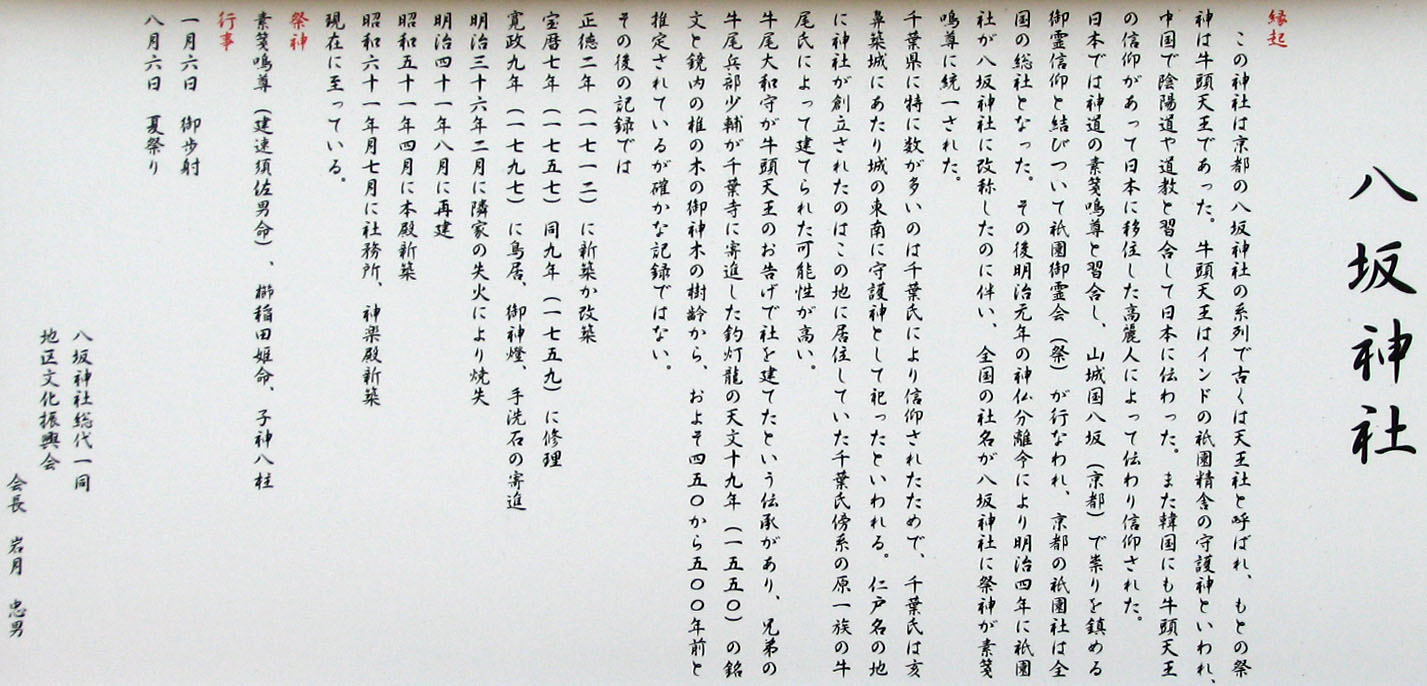 八坂神社
縁起
この神社は京都の八坂神社の系列で古くは天王社と呼ばれ、もとの祭
神は牛頭天王であった。牛頭天王はインドの祇園精舎の守護神といわれ、
中国で陰陽道や道教と習合して日本に伝わった。また韓国にも牛頭天王
の信仰があって日本に移住した高麗人によって伝わり信仰された。
日本では神道の素箋鳴尊と習合し、山城国八坂（京都）で祟りを鎮める
御霊信仰と結びついて祇園御霊会（祭）が行なわれ、京都の祇園社は全
国の総社となった。その後明治元年の神仏分離令により明治四年に祇園
社が八坂神社に改称したのに伴い、全国の社名が八坂神社に祭神が素箋
鳴尊に統一された。
千葉県に特に数が多いのは千葉氏により信仰されたためで、千葉氏は亥
鼻築城にあたり城の東南に守護神として祀ったといわれる。仁戸名の地
に神社が創立されたのはこの地に居住していた千葉氏傍系の原一族の牛
尾氏によって建てられた可能性が高い。
牛尾大和守が牛頭天王のお告げで社を建てたという伝承があり、兄弟の
牛尾兵部少輔が千葉寺に寄進した釣灯龍の天文十九年（一五五〇）の銘
文と鏡内の椎の木の御神木の樹齢から、およそ四五〇から五〇〇年前と
推定されているが確かな記録ではない。
その後の記録では
正徳二年（一七一二）に新築か改築
宝暦七年（一七五七）同九年（一七五九）に修理
寛政九年（一七九七）に鳥居、御神燈、手洗石の寄進
明治三十六年二月に隣家の失火により焼失
明治四十一年八月に再建
昭和五十一年四月に本殿新築
昭和六十一年月七月に社務所、神楽殿新築
現在に至っている。
祭神
素箋鳴尊（建速須佐男命）、櫛稲田姫命、子神八柱
行事
一月六日　御歩射
八月六日　夏祭り
八坂神社総代一同
地区文化振興会
会長　岩月　忠男